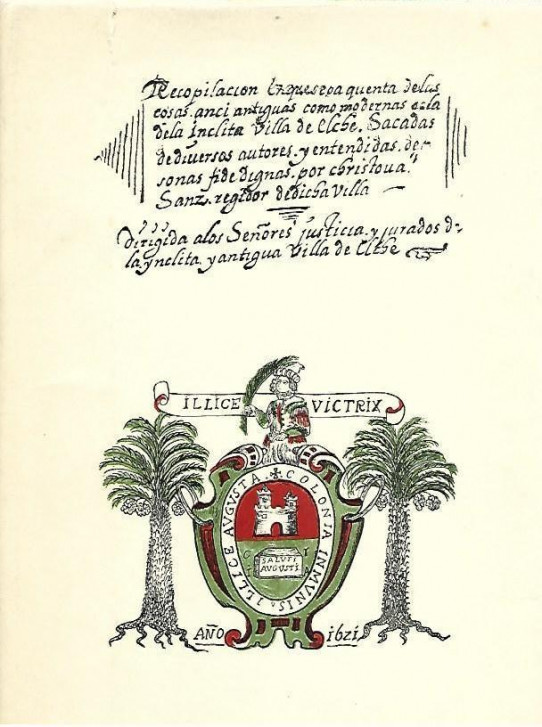 Recopilacion En que se da quenta de las
cosas anci antiguas como modernas
dela Ínclita Villa de Elche. Sacadas
de diversos autores. y entendidas. de per
sonas fide dignas. por christoval
Sanz. regidor de dicha villa
Dirigida alos Señores justicia. y jurados de
la ynclita y antigua Villa de Elche
ILLICE VICTRIX
COLONIA INMUNIS ILLICE AUGUSTA
C I
SALUTI
AUGUSTI
I A
AÑO 1621